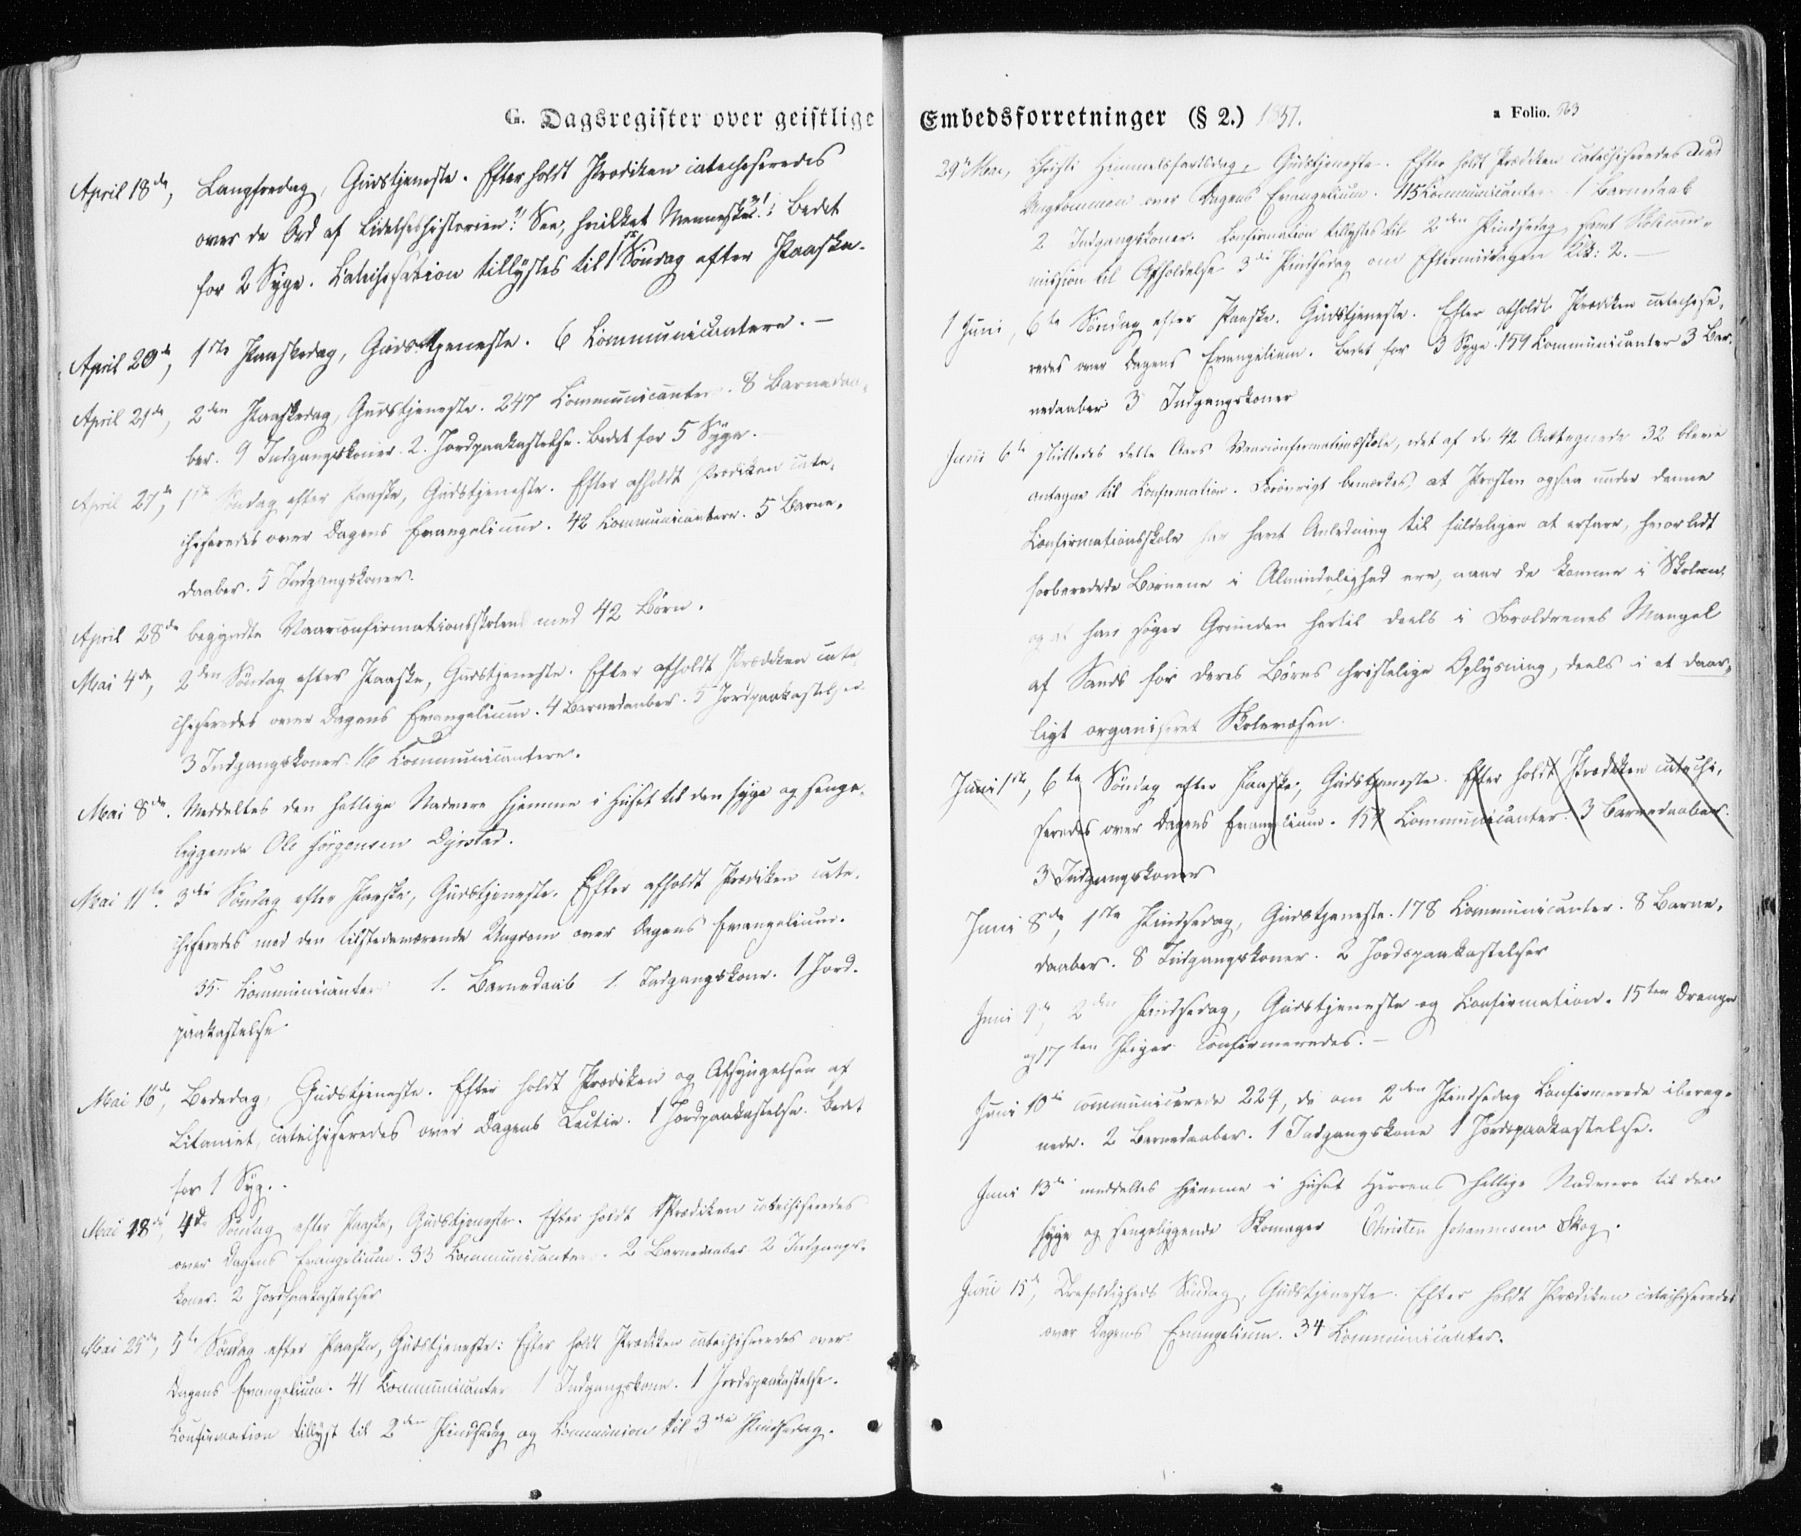 G. Dagsregister over geistlige
April 18de, Langfredag, Gudstjeneste. Efter holdt Prædiken catechiseredes
over de Ord af Lidelseshistorien: "See, hvilket Menneske"! Bedet
for 2 Syge. Catechisation tillystes til 1ste Søndag efter Paaske.
April 20de, 1ste Paaskedag, Gudstjeneste. 6 Communicantere. —
April 21de, 2den Paaskedag, Gudstjeneste. 247 Communicanter. 8 Barnedaa-
ber. 9 Indgangskoner. 2 Jordpaakastelse. Bedet for 5 Syge.
April 27de, 1ste Søndag efter Paaske, Gudstjeneste. Efter afholdt Prædiken cate-
chiseredes over Dagens Evangelium. 42 Communicantere. 5 Barne-
daaber. 5 Indgangskoner.
April 28de begyndte Vaarconfirmationsskolen med 42 Børn.
Mai 4de, 2den Søndag efter Paaske, Gudstjeneste. Efter afholdt Prædiken cate
chiseredes over Dagens Evangelium. 4 Barnedaaber. 5 Jordpaakastelser
3 Indgangskoner. 16 Communicantere.
Mai 8de. Meddeltes den hellige Nadvere hjemme i Huset til den syge og senge-
liggende Ole Jørgensen
Mai 11te. 3die Søndag efter Paaske, Gudstjeneste. Efter afholdt Prædiken cate-
chiseredes med den tilstedeværende Ungdom over Dagens Evangelium.
35 Communicanter 1. Barnedaab 1. Indgangskone. 1 Jord-
paakastelse.
Mai 16de, Bededag, Gudstjeneste. Efter holdt Prædiken og Afsyngelsen af
Litaniet, catechiseredes over Dagens Lectie. 1 Jordpaakastelse. Bedet
for 1 Syg.
Mai 18de, 4de Søndag efter Paaske, Gudstjeneste. Efter holdt Prædiken catechiseredes
over Dagens Evangelium. 33 Communicanter. 2 Barnedaaber 2 Indgangs-
koner. 2 Jordpaakastelser
Mai 25de, 5te Søndag efter Paaske, Gudstjeneste: Efter holdt Prædiken catechiseredes over
Dagens Evangelium. 41 Communicanter 1 Indgangskone. 1 Jordspaakastelse.
Confirmation tillyst til 2den Pindsedag og Communion til 3die Pindsedag.
Embedsforretninger (§ 2.) 1851. a Folio. 563
29de Mai, Christi Himmelfartsdag, Gudstjeneste. Efter holdt Prædiken catechiseredes med
Ungdommen over Dagens Evangelium. 115 Communicanter 1 Barnedaab
2 Indgangskoner. Confirmation tillystes til 2den Pindsedag samt Skolecom-
mission til Afholdelse 3die Pindsedag om Eftermiddagen Kl: 2. —
1 Juni, 6te Søndag efter Paaske. Gudstjeneste. Efter afholdt Prædiken catechise-
redes over Dagens Evangelium. Bedet for 3 Syge. 159 Communicanter 3 Bar-
nedaaber 3 Indgangskoner
Juni 6te sluttedes dette Aars Vaarconfirmationsskole, idet af de 42 Antegnede 32 bleve
antagne til Confirmation. Forøvrigt bemærkes at Præsten ogsaa under denne
Confirmationsskole har havt Anledning til fuldeligen at erfare, hvor lidt
forberedede Børnene i Almindelighed ere, naar de komme i Skolen,
og at han søger Grunden hertil deels i Forældrenes Mangel
af Sands for deres Børns christelige Oplysning, deels i et daar-
ligt organiseret Skolevæsen.
Juni 1ste, 6te Søndag efter Paaske, Gudstjeneste. Efter holdt Prædiken catechi-
seredes over Dagens Evangelium. 159 Communicanter. 3 Barnedaaber.
3 Indgangskoner
Juni 8de, 1ste Pindsedag, Gudstjeneste. 178 Communicanter. 8 Barne-
daaber. 8 Indgangskoner. 2 Jordspaakastelser
Juni 9de, 2den Pindsedag, Gudstjeneste og Confirmation. 15ten Drenge
og 17ten Piger confirmeredes. —
Juni 10de communicerede 224, de om 2den Pindsedag Confirmerede ibereg-
nede. 2 Barnedaaber. 1 Indgangskone 1 Jordspaakastelse.
Juni 13de meddeltes hjemme i Huset Herrens hellige Nadvere til den
syge og sengeliggende Skomager Christen Johannesen Skog.
Juni 15de, Trefoldigheds Søndag, Gudstjeneste. Efter holdt Prædiken catechiseredes
over Dagens Evangelium. 34 Communicanter.